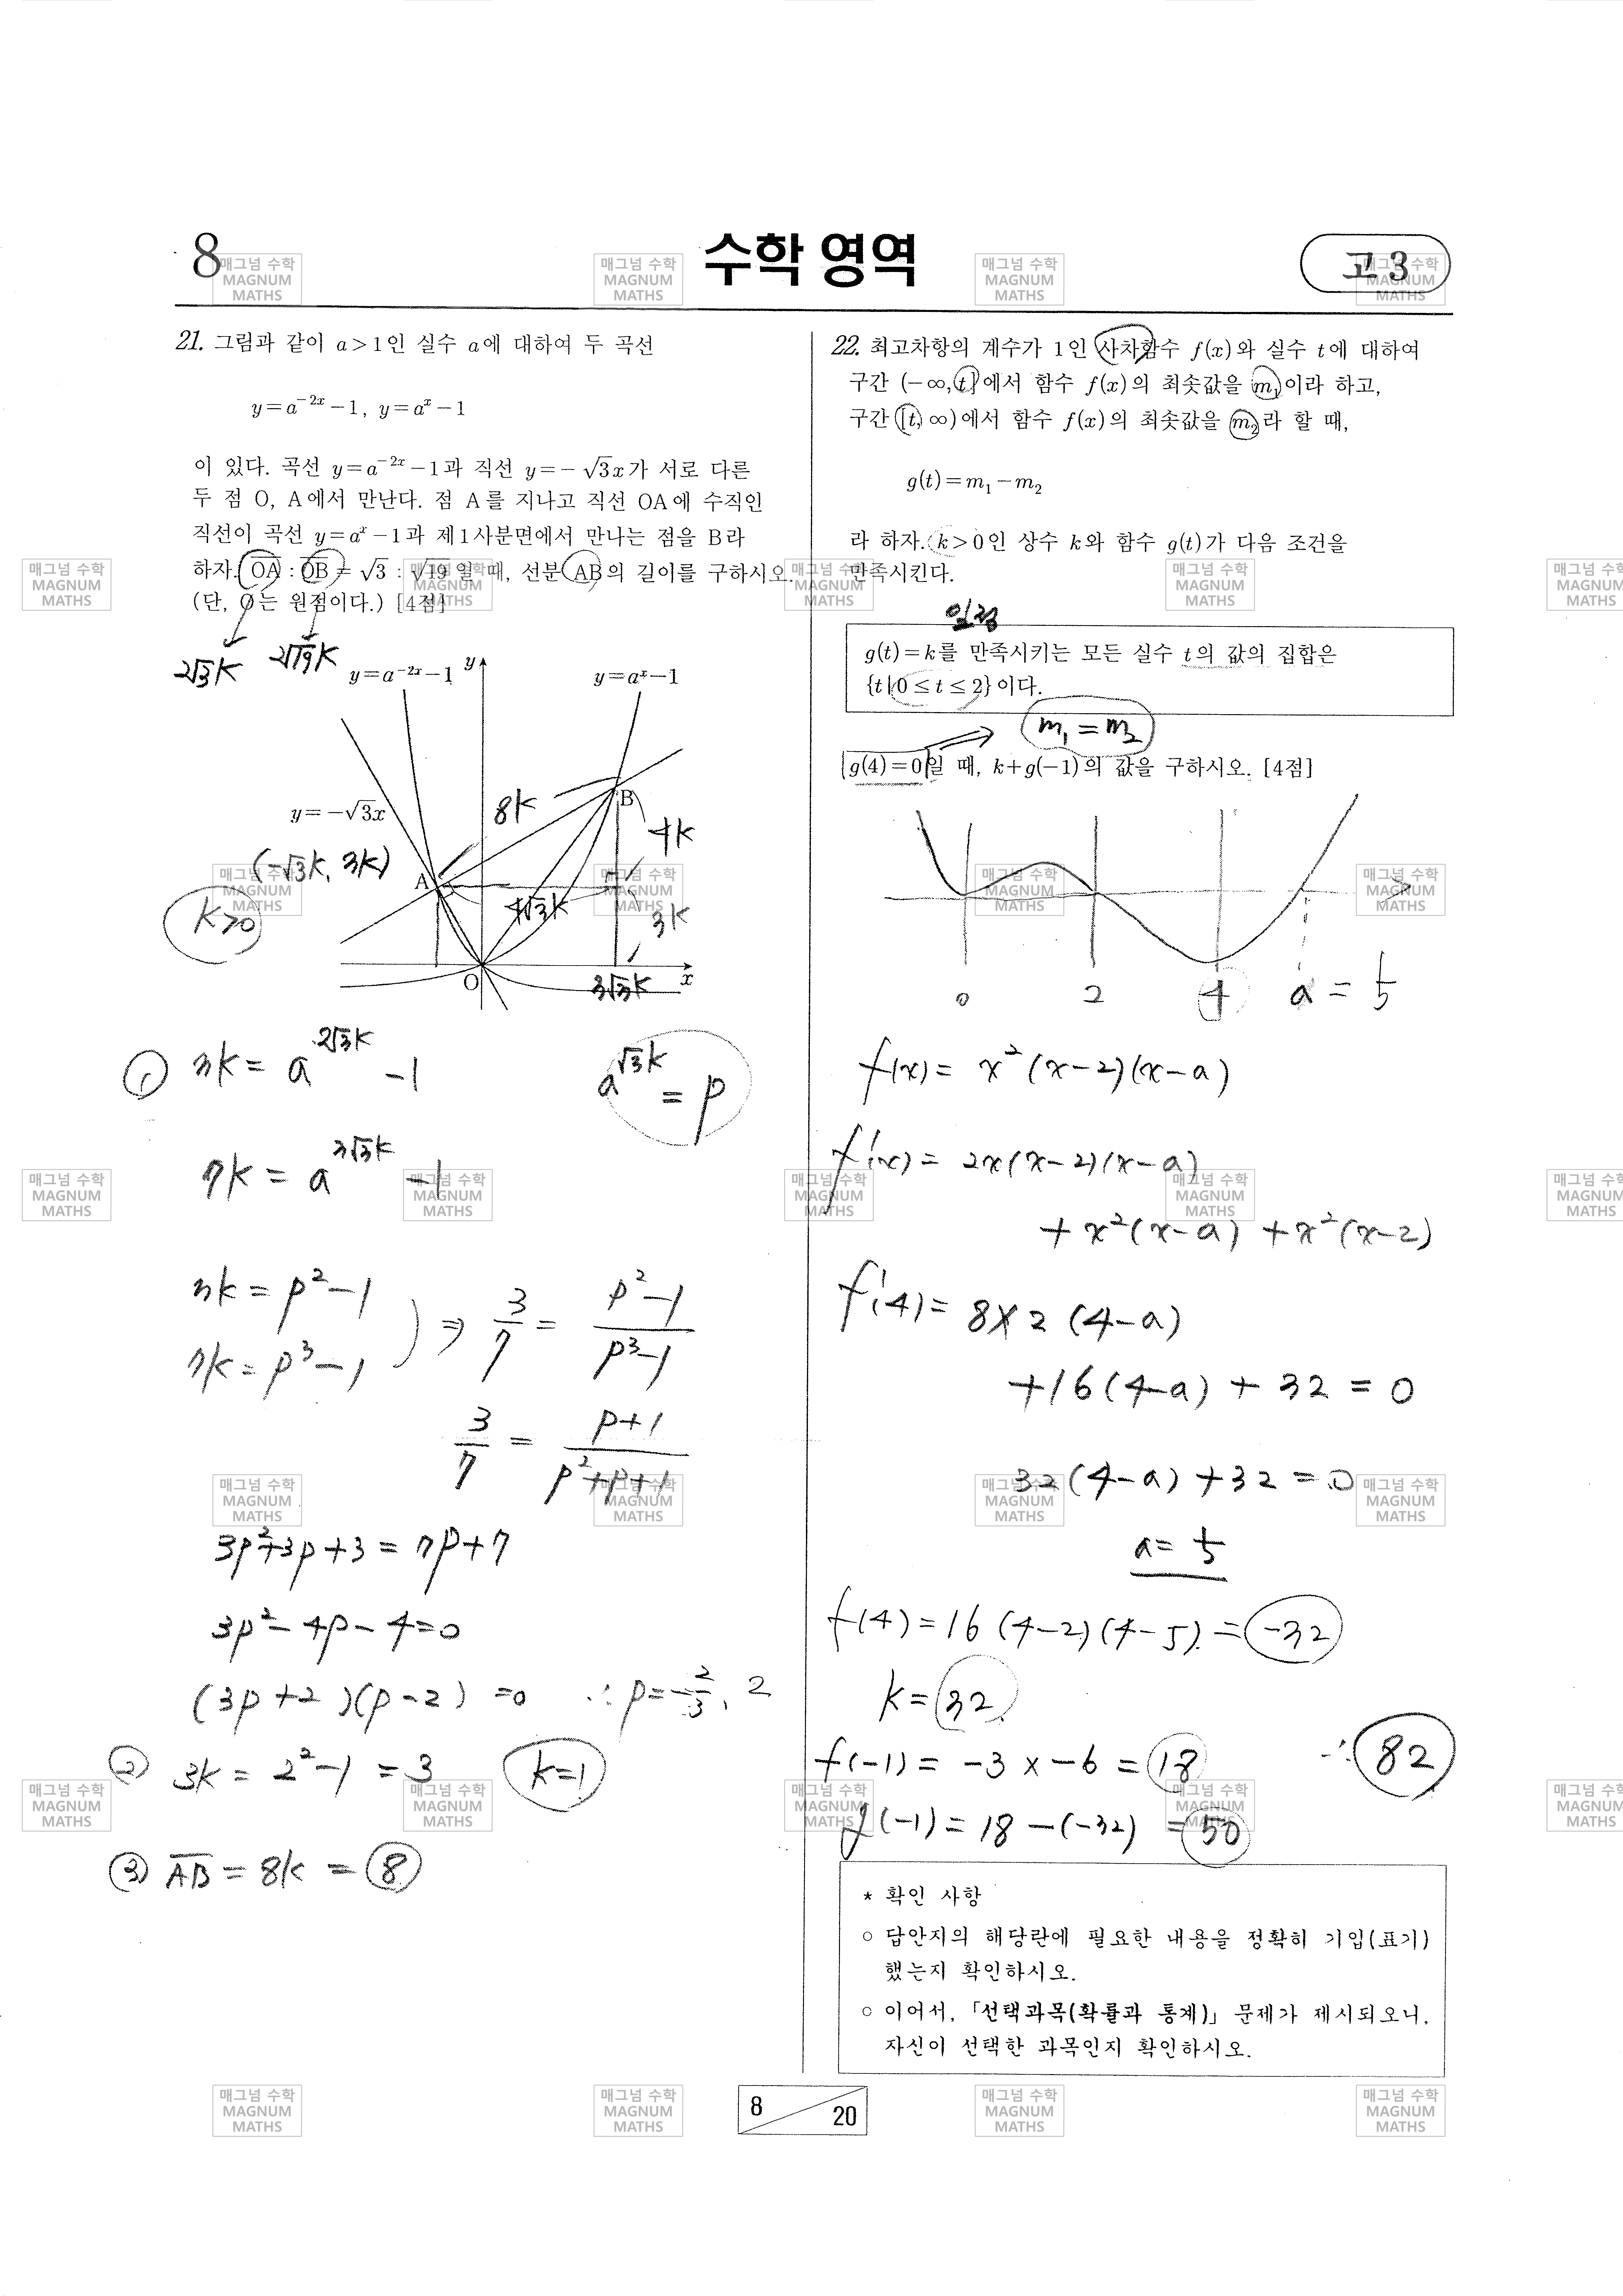 8
수학 영역
고 3
21. 그림과 같이 a>1인 실수 a에 대하여 두 곡선
y=a^{-2x}-1, y=a^x-1
이 있다. 곡선 y=a^{-2x}-1과 직선 y=-√3x가 서로 다른
두 점 O, A에서 만난다. 점 A를 지나고 직선 OA에 수직인
직선이 곡선 y=a^x-1과 제1사분면에서 만나는 점을 B라
하자. OA : OB = √3 : √19일 때, 선분 AB의 길이를 구하시오.
(단, O는 원점이다.) [4점]
2√3k 2√19k
y=a^{-2x}-1 y y=a^x-1
y=-√3x 8k B 4k
(-√3k, 3k) A
k>0 4√3k 3k
O 3√3k x
① 3k = a^{2√3k} -1 a^{√3k} = p
7k = a^{3√3k} -1
3k = p²-1
7k = p³-1 ⇒ 3/7 = (p²-1)/(p³-1)
3/7 = (p+1)/(p²+p+1)
3p²+3p+3 = 7p+7
3p²-4p-4=0
(3p+2)(p-2)=0 ∴ p=-2/3, 2
② 3k = 2²-1 = 3 k=1
③ AB = 8k = 8
22. 최고차항의 계수가 1인 사차함수 f(x)와 실수 t에 대하여
구간 (-∞, t]에서 함수 f(x)의 최솟값을 m₁이라 하고,
구간 [t, ∞)에서 함수 f(x)의 최솟값을 m₂라 할 때,
g(t)=m₁-m₂
라 하자. k>0인 상수 k와 함수 g(t)가 다음 조건을
만족시킨다.
일정
g(t)=k를 만족시키는 모든 실수 t의 값의 집합은
{t|0≤t≤2}이다.
m₁ = m₂
g(4)=0일 때, k+g(-1)의 값을 구하시오. [4점]
0 2 4 a = 5
f(x) = x²(x-2)(x-a)
f'(x) = 2x(x-2)(x-a)
+ x²(x-a) + x²(x-2)
f'(4) = 8×2(4-a)
+16(4-a) + 32 = 0
32(4-a) + 32 = 0
a = 5
f(4) = 16(4-2)(4-5) = -32
k = 32
f(-1) = -3 × -6 = 18 ∴ 82
g(-1) = 18 -(-32) = 50
* 확인 사항
○ 답안지의 해당란에 필요한 내용을 정확히 기입(표기)
했는지 확인하시오.
○ 이어서, 「선택과목(확률과 통계)」 문제가 제시되오니,
자신이 선택한 과목인지 확인하시오.
8 20
매그넘 수학
MAGNUM
MATHS